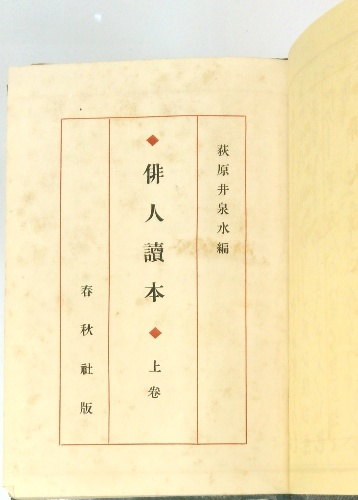 萩原井泉水編
◆俳人讀本◆上卷
春秋社版